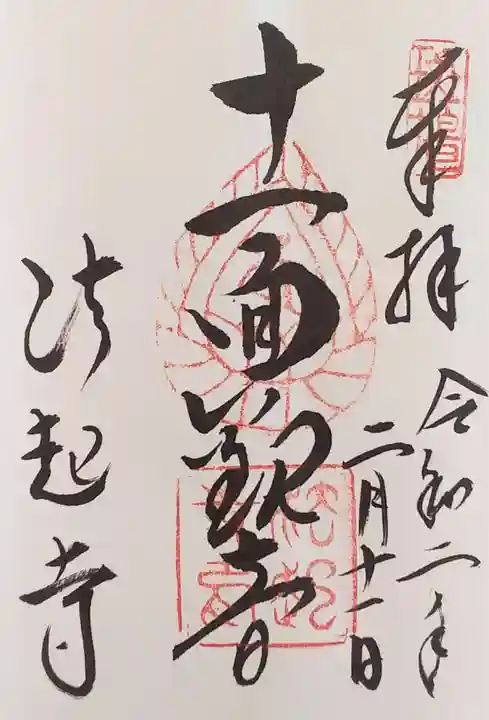 奉拝
令和二年
二月十一日
十一面観音
法起寺